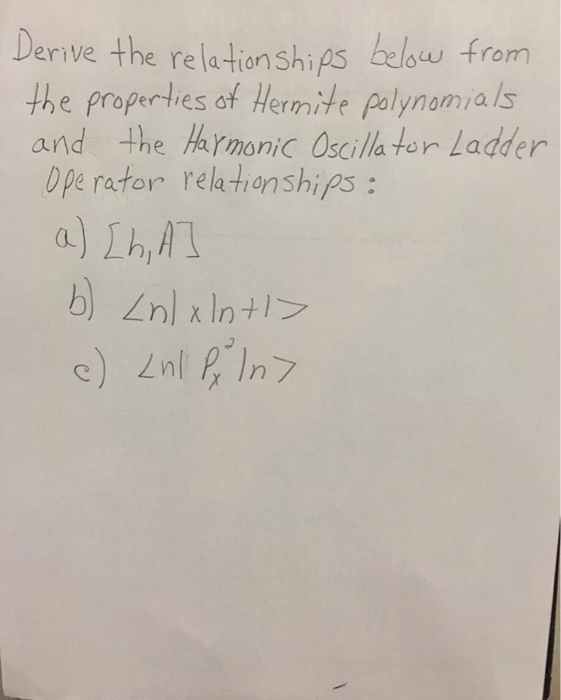 Derive the relationships below from
the properties of Hermite polynomials
and the Harmonic Oscillator Ladder
Operator relationships:
a) [h,A]
b) <n|x|n+1>
c) <n|Pₓ²|n>